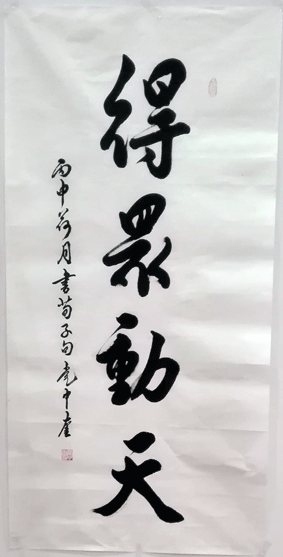 得眾動天
丙申荷月書荀子句